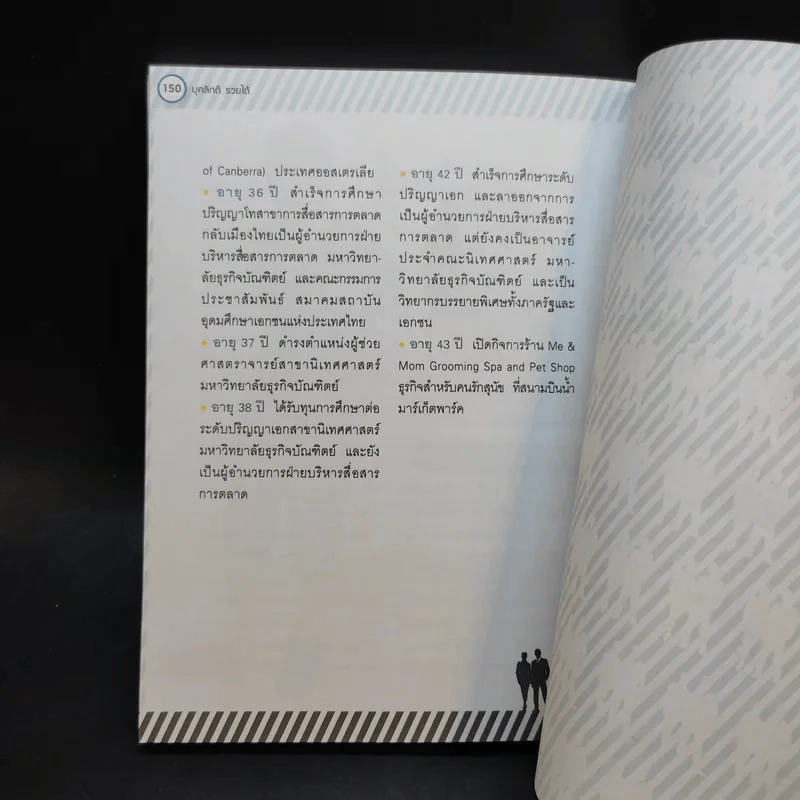 150 บุคลิกดี รวยได้
of Canberra) ประเทศออสเตรเลีย
• อายุ 36 ปี สำเร็จการศึกษา
ปริญญาโทสาขาการสื่อสารการตลาด
กลับเมืองไทยเป็นผู้อำนวยการฝ่าย
บริหารสื่อสารการตลาด มหาวิทยา-
ลัยธุรกิจบัณฑิตย์ และคณะกรรมการ
ประชาสัมพันธ์ สมาคมสถาบัน
อุดมศึกษาเอกชนแห่งประเทศไทย
• อายุ 37 ปี ดำรงตำแหน่งผู้ช่วย
ศาสตราจารย์สาขานิเทศศาสตร์
มหาวิทยาลัยธุรกิจบัณฑิตย์
• อายุ 38 ปี ได้รับทุนการศึกษาต่อ
ระดับปริญญาเอกสาขานิเทศศาสตร์
มหาวิทยาลัยธุรกิจบัณฑิตย์ และยัง
เป็นผู้อำนวยการฝ่ายบริหารสื่อสาร
การตลาด
• อายุ 42 ปี สำเร็จการศึกษาระดับ
ปริญญาเอก และลาออกจากการ
เป็นผู้อำนวยการฝ่ายบริหารสื่อสาร
การตลาด แต่ยังคงเป็นอาจารย์
ประจำคณะนิเทศศาสตร์ มหา-
วิทยาลัยธุรกิจบัณฑิตย์ และเป็น
วิทยากรบรรยายพิเศษทั้งภาครัฐและ
เอกชน
• อายุ 43 ปี เปิดกิจการร้าน Me &
Mom Grooming Spa and Pet Shop
ธุรกิจสำหรับคนรักสุนัข ที่สนามบินน้ำ
มาร์เก็ตพาร์ค